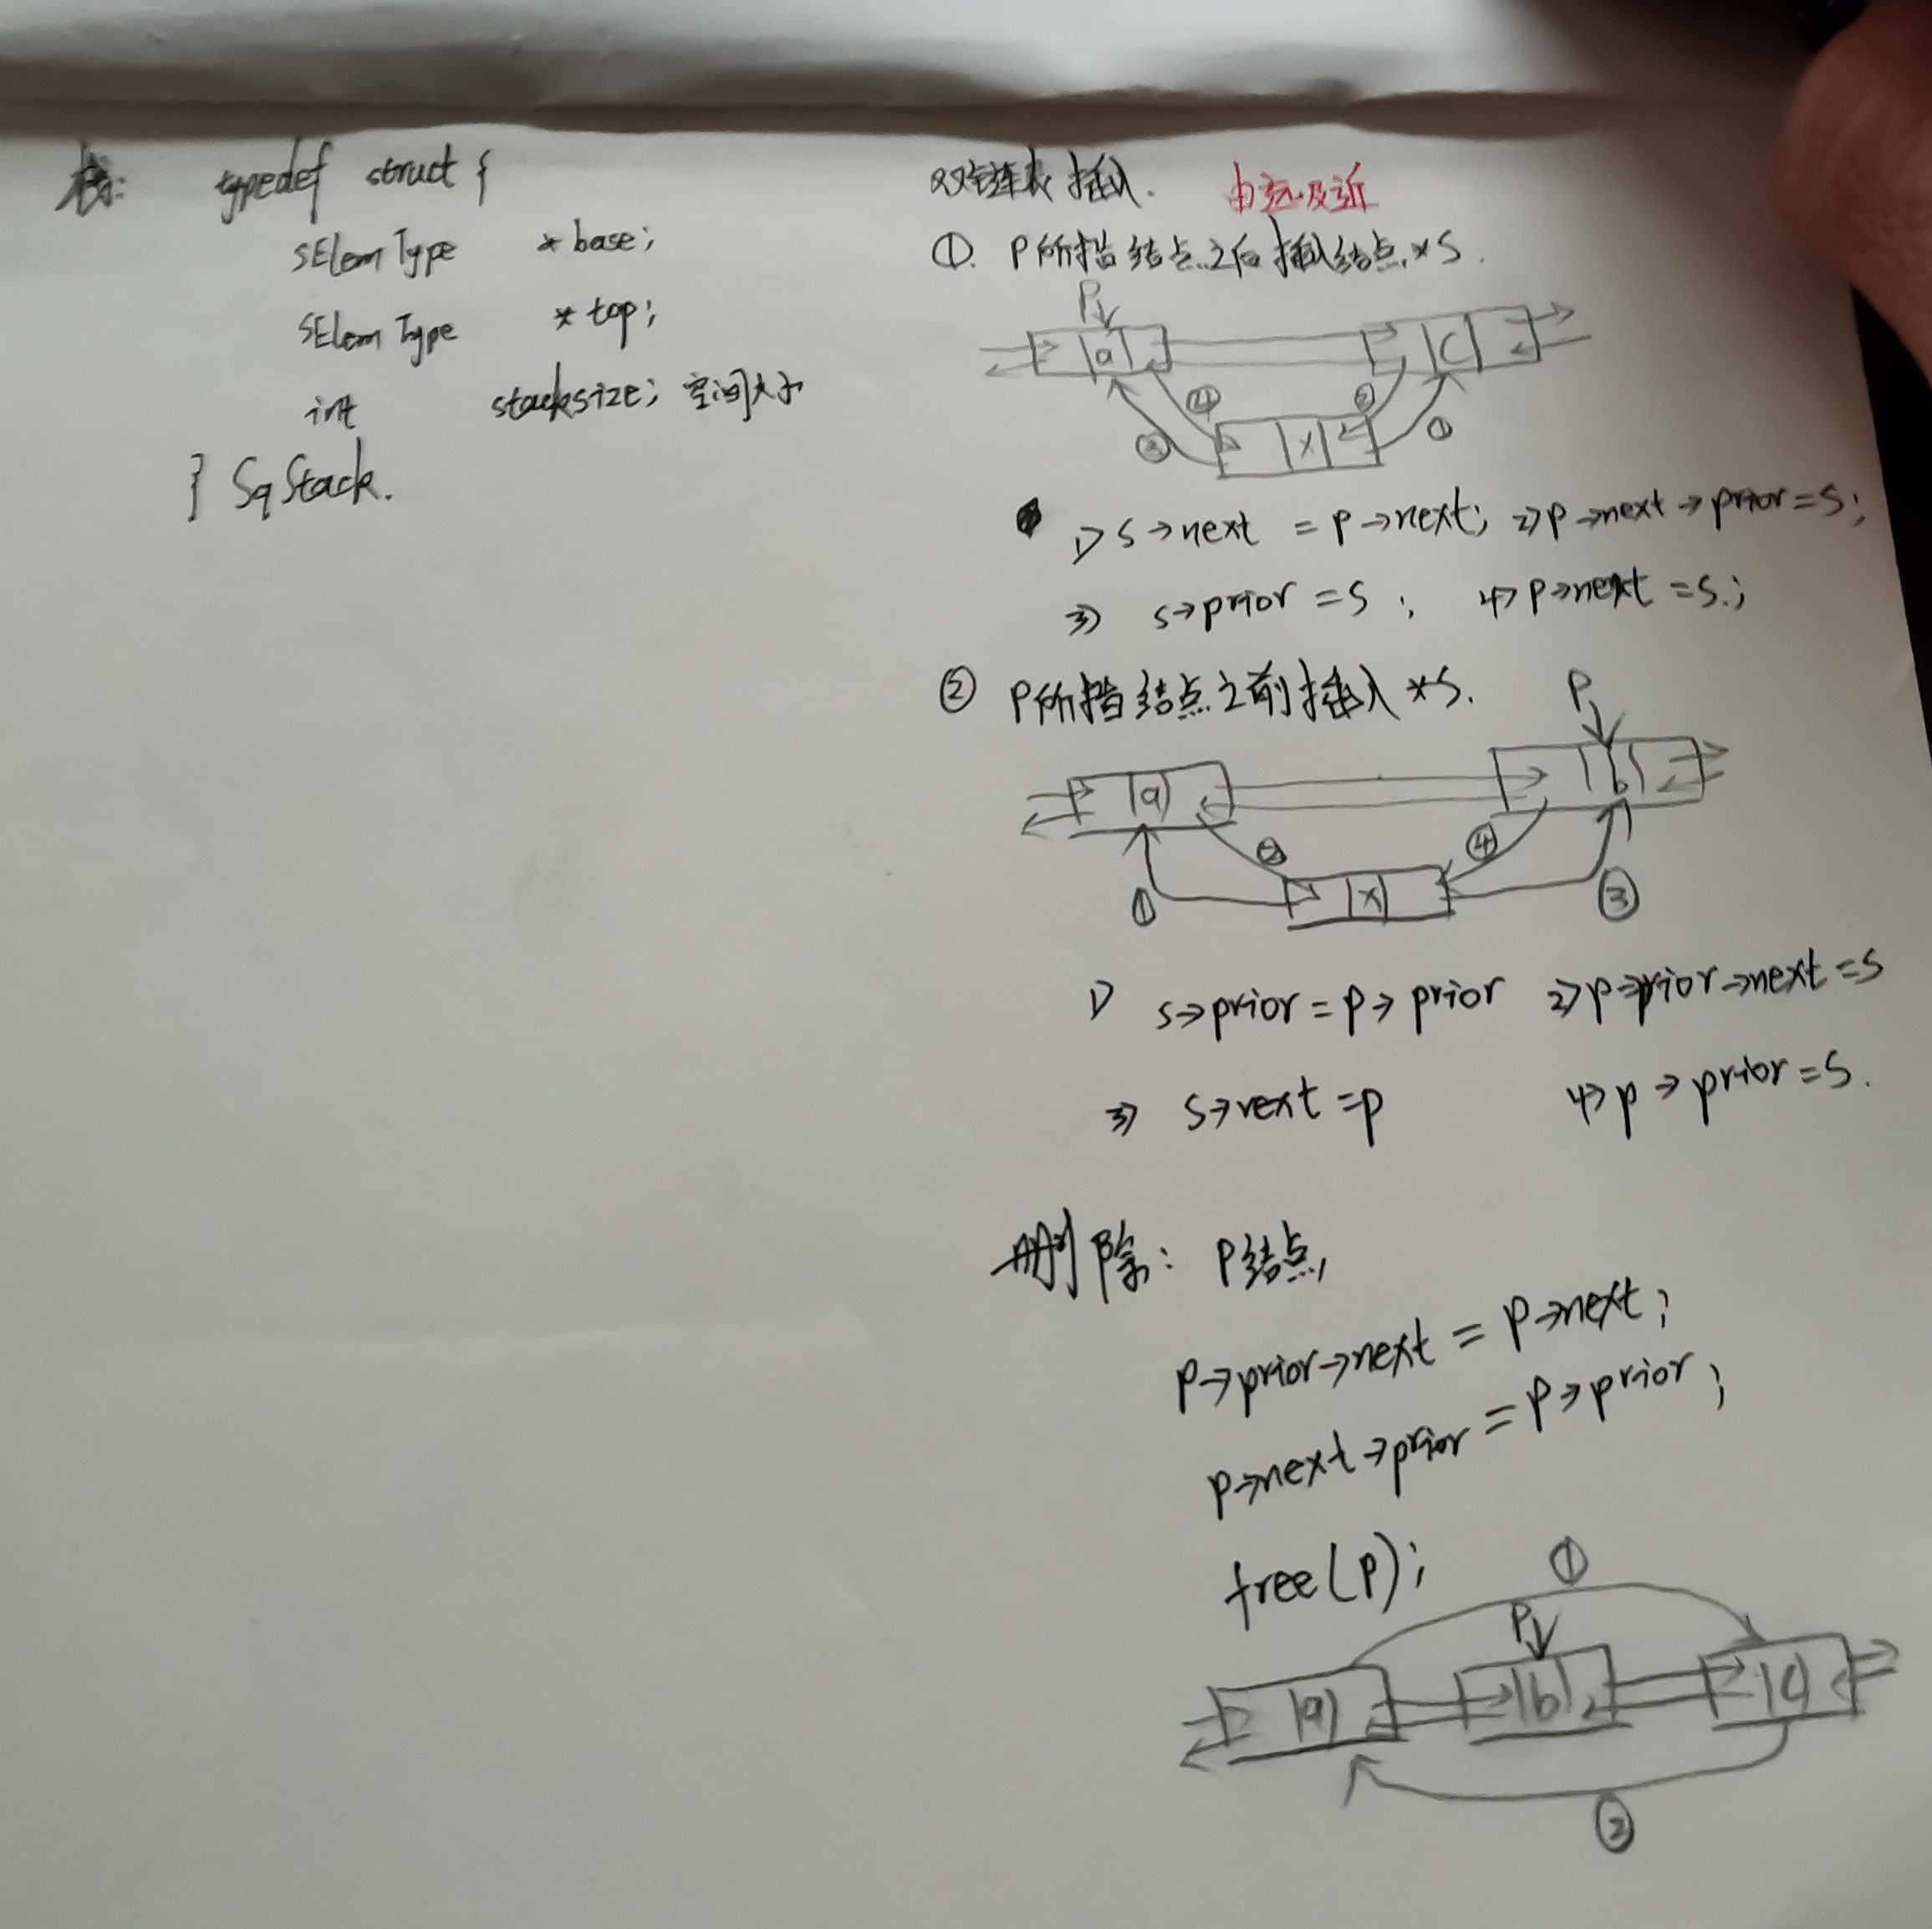 栈: typedef struct {
SElemType *base;
SElemType *top;
int stacksize; 空间大小
} SqStack.
双链表插入. 由远及近
①. P所指结点之后插入结点*S.
P
a C
④ ② ③ ①
X
1> s→next = p→next; 2> p→next→prior=s;
3> s→prior = s; 4> p→next = s.;
② P所指结点之前插入*S.
P
a b
② ④
① X ③
1> s→prior = p→prior 2> p→prior→next=s
3> s→next=p 4> p→prior=s.
删除: P结点,
p→prior→next = p→next;
p→next→prior = p→prior;
free(p);
①
P
a b c
②